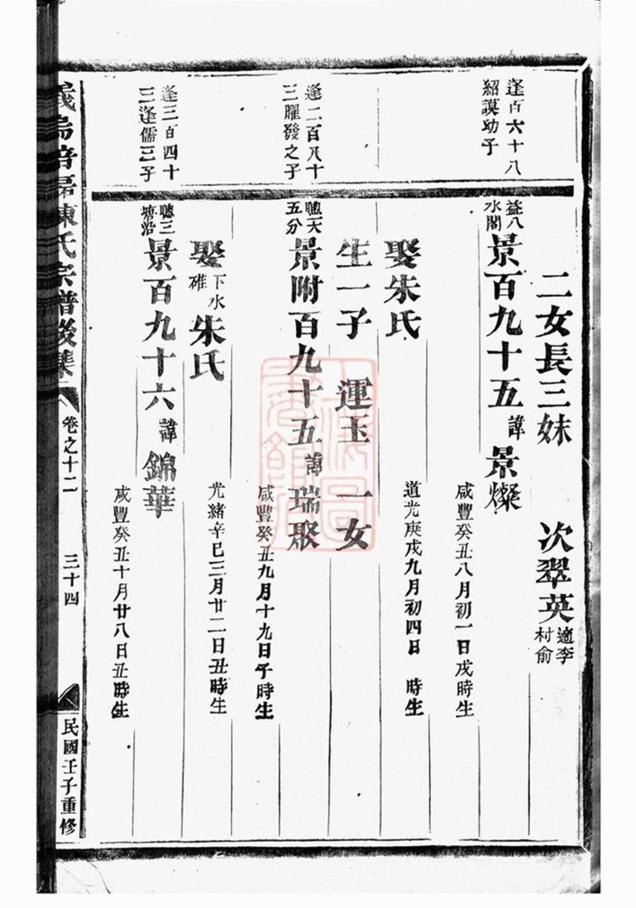 二女長三妹 次翠英適李村俞
逢百六十八
紹謨幼子
益八
水閣
景百九十五 諱 景燦
咸豐癸丑八月初一日戌時生
娶朱氏
道光庚戌九月初四日 時生
生一子 運玉 一女
逢二百八十
三耀發之子
聰大
五分
景附百九十五 諱 瑞聚
咸豐癸丑九月十九日午時生
娶下水碓朱氏
光緒辛巳三月廿二日丑時生
逢三百四十
三逢儒三子
聰三
塘沿
景百九十六 諱 錦華
咸豐癸丑十月廿八日丑時生
陳氏宗譜
卷之十二
三十四
民國壬子重修